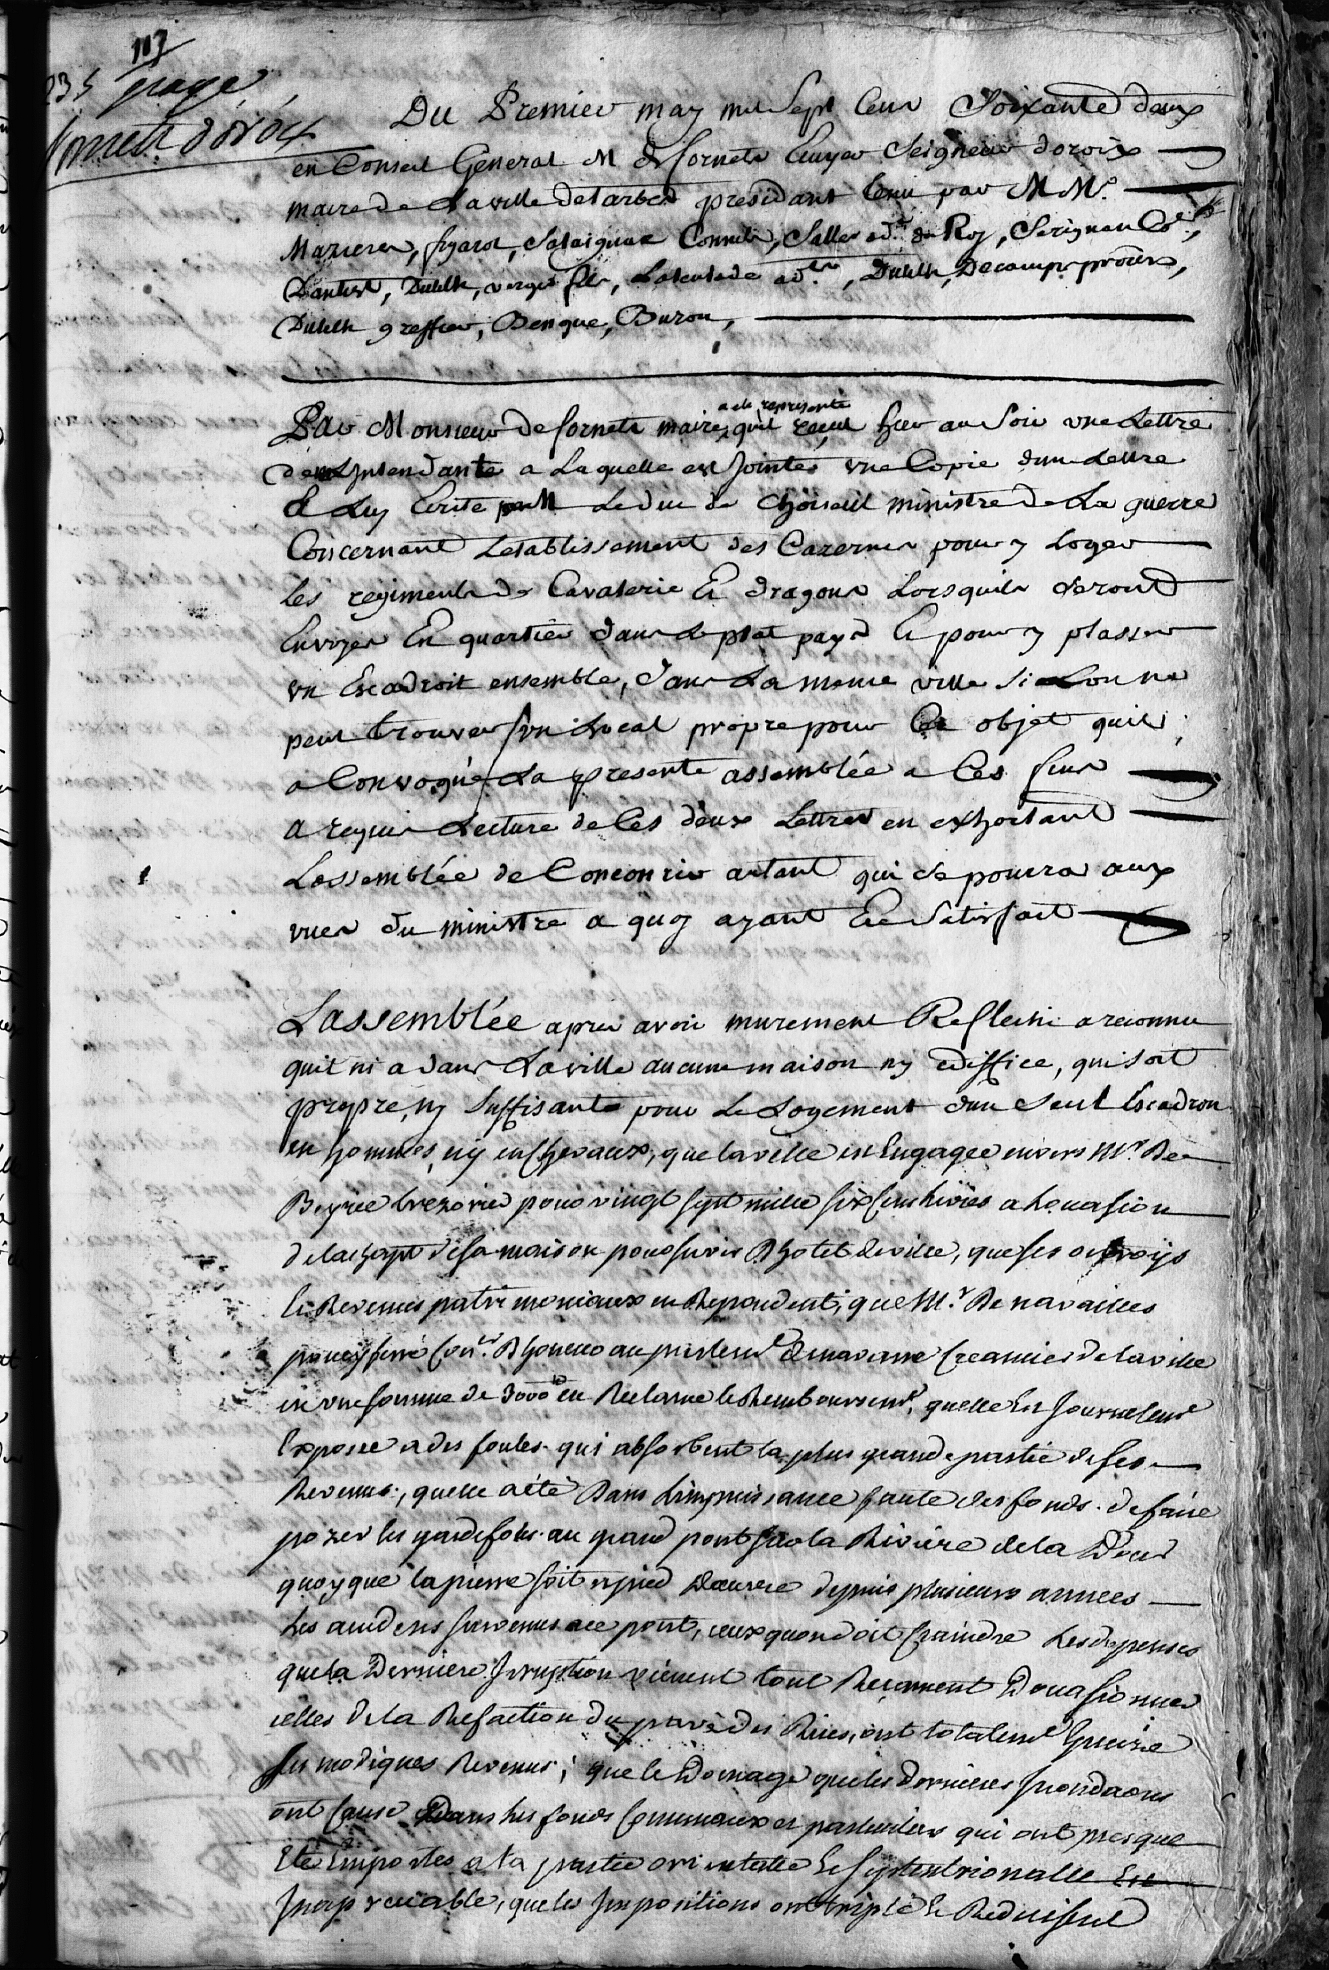 117
235 page
Cornetti d'oroix
Du Premier may mil Sept Cens Soixante deux
en Conseil General M de Cornete Ecuyer Seigneur doroix
maire de La ville de tarbes presidant tenu par M Mrs
Mazieres, figarol, Salaignac Conuls, Salles adt du Roy, Serignan
Dautest, Dulilh, verges fils, Lascalade adt, Dulilh, Decamps procurs,
Dulilh greffier, Benque, Buron,
Par Monsieur de Cornete maire a ete representé quil recut hier au Soir une Lettre
de LIntendante a Laquelle est Jointe une Copie dune Lettre
a Luy Ecrite par M Leduc de Choiseul ministre de La guerre
Concernant Letablissement des Cazernes pour y Loger
les regiments de Cavalerie Et dragons Lorsquils seront
Envoyes En quartier dans Le plat pays Et pour y plasser
un Escadroit ensemble, dans La meme ville si Lon ne
peut trouver un Local propre pour Cet objet quil
a Convoqué La presente assemblée a Ces fins
a requis Lecture de Ces deux Lettres en exhortant
Lassemblée de Concourir autant qui se pourra aux
vues du ministre a quoy ayant Ete Satisfait
Lassemblée apres avoir murement Reflechi a reconnu
quil ni a dans La ville aucune maison ny ediffice, qui soit
propre, ny Suffisante pour Le Logement dun Seul Escadron
en hommes, ny en Chevaux, que la ville est Engagée envers Mr De
Beyrie trezorier pour vingt sept mille six cens livres a loccasion
de lachapt de sa maison pour servir Dhotel de ville, que ses octroys
Et Revenus patrimoniaux en Repondent; que Mr De navailles
poueyferré Conr Dhonneur au parlemt de navarre Creancier de la ville
en une somme de 3000 en Reclame le Remboursemt, quelle Est Journelemt
Exposée a des foules qui absorbent la plus grande partie de ses
Revenus, quelle a été Dans Limpuissance faute des fonds de faire
pozer les gardefols au grand pont sur la Riviere de la Dour
quoyque la pierre soit a pied Dœuvre depuis plusieurs années
Les accidens survenus a ce pont, ceux quon doit Craindre Les depenses
que la Derniere Irruption vienent tout Recemment Doccasionner
celles de la Refaction du pavé des Rues, ont totalemt Epuizé
Ses modiques Revenus; que le Domage que les dernieres Inondaons
ont Causé Dans les fonds Communaux et particuliers qui ont presque
Eté Emportés a la partie orientalle Et septentrionalle Est
Inapreciable, que les Impositions ont triplé Et Reduisent